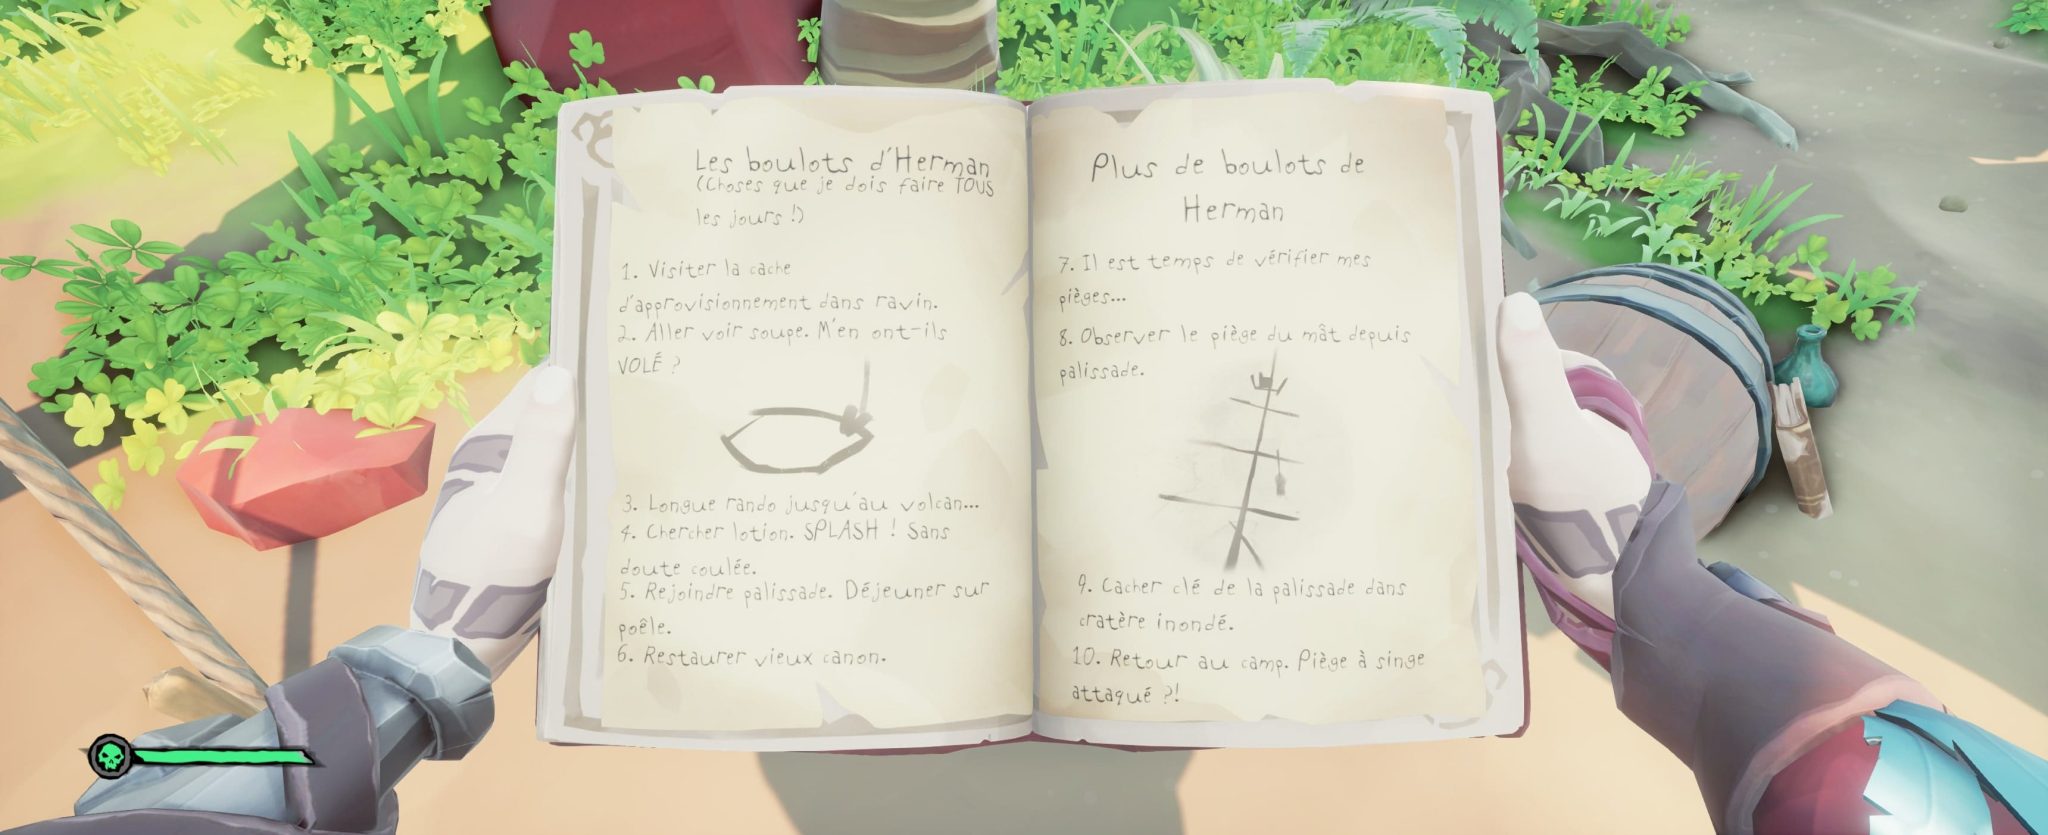 Les boulots d'Herman
(Choses que je dois faire TOUS
les jours !)
1. Visiter la cache
d'approvisionnement dans ravin.
2. Aller voir soupe. M'en ont-ils
VOLÉ ?
3. Longue rando jusqu'au volcan...
4. Chercher lotion. SPLASH ! Sans
doute coulée.
5. Rejoindre palissade. Déjeuner sur
poêle.
6. Restaurer vieux canon.
Plus de boulots de
Herman
7. Il est temps de vérifier mes
pièges...
8. Observer le piège du mât depuis
palissade.
9. Cacher clé de la palissade dans
cratère inondé.
10. Retour au camp. Piège à singe
attaqué ?!